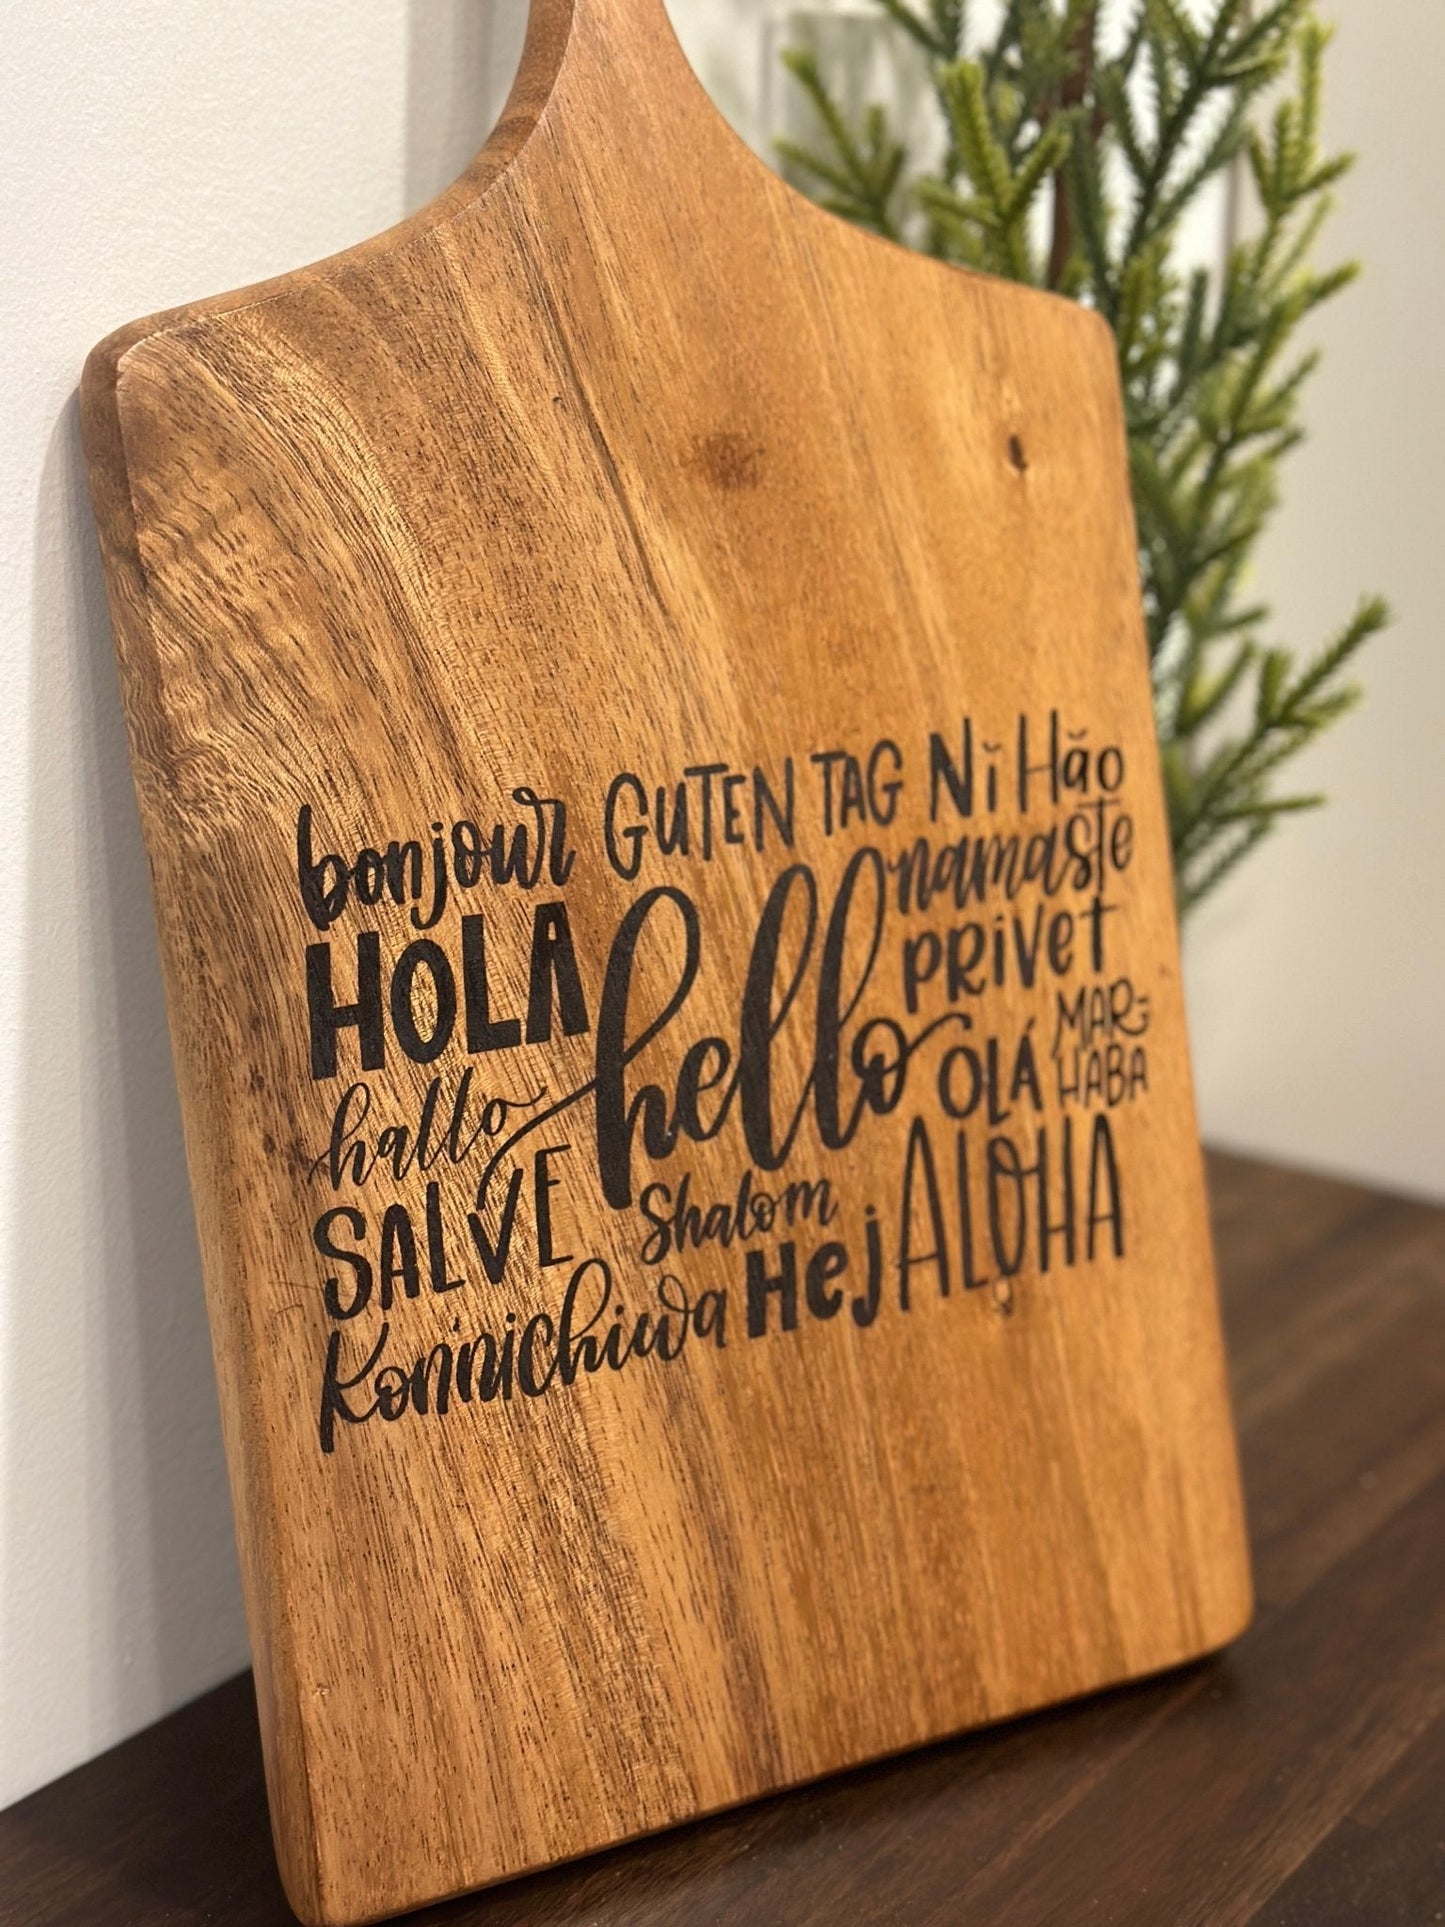 bonjour GUTEN TAG Nǐ Hǎo
HOLA hello namaste
PRIVET
hallo OLÁ MAR-
HABA
SALVE Shalom ALOHA
Konnichiwa Hej